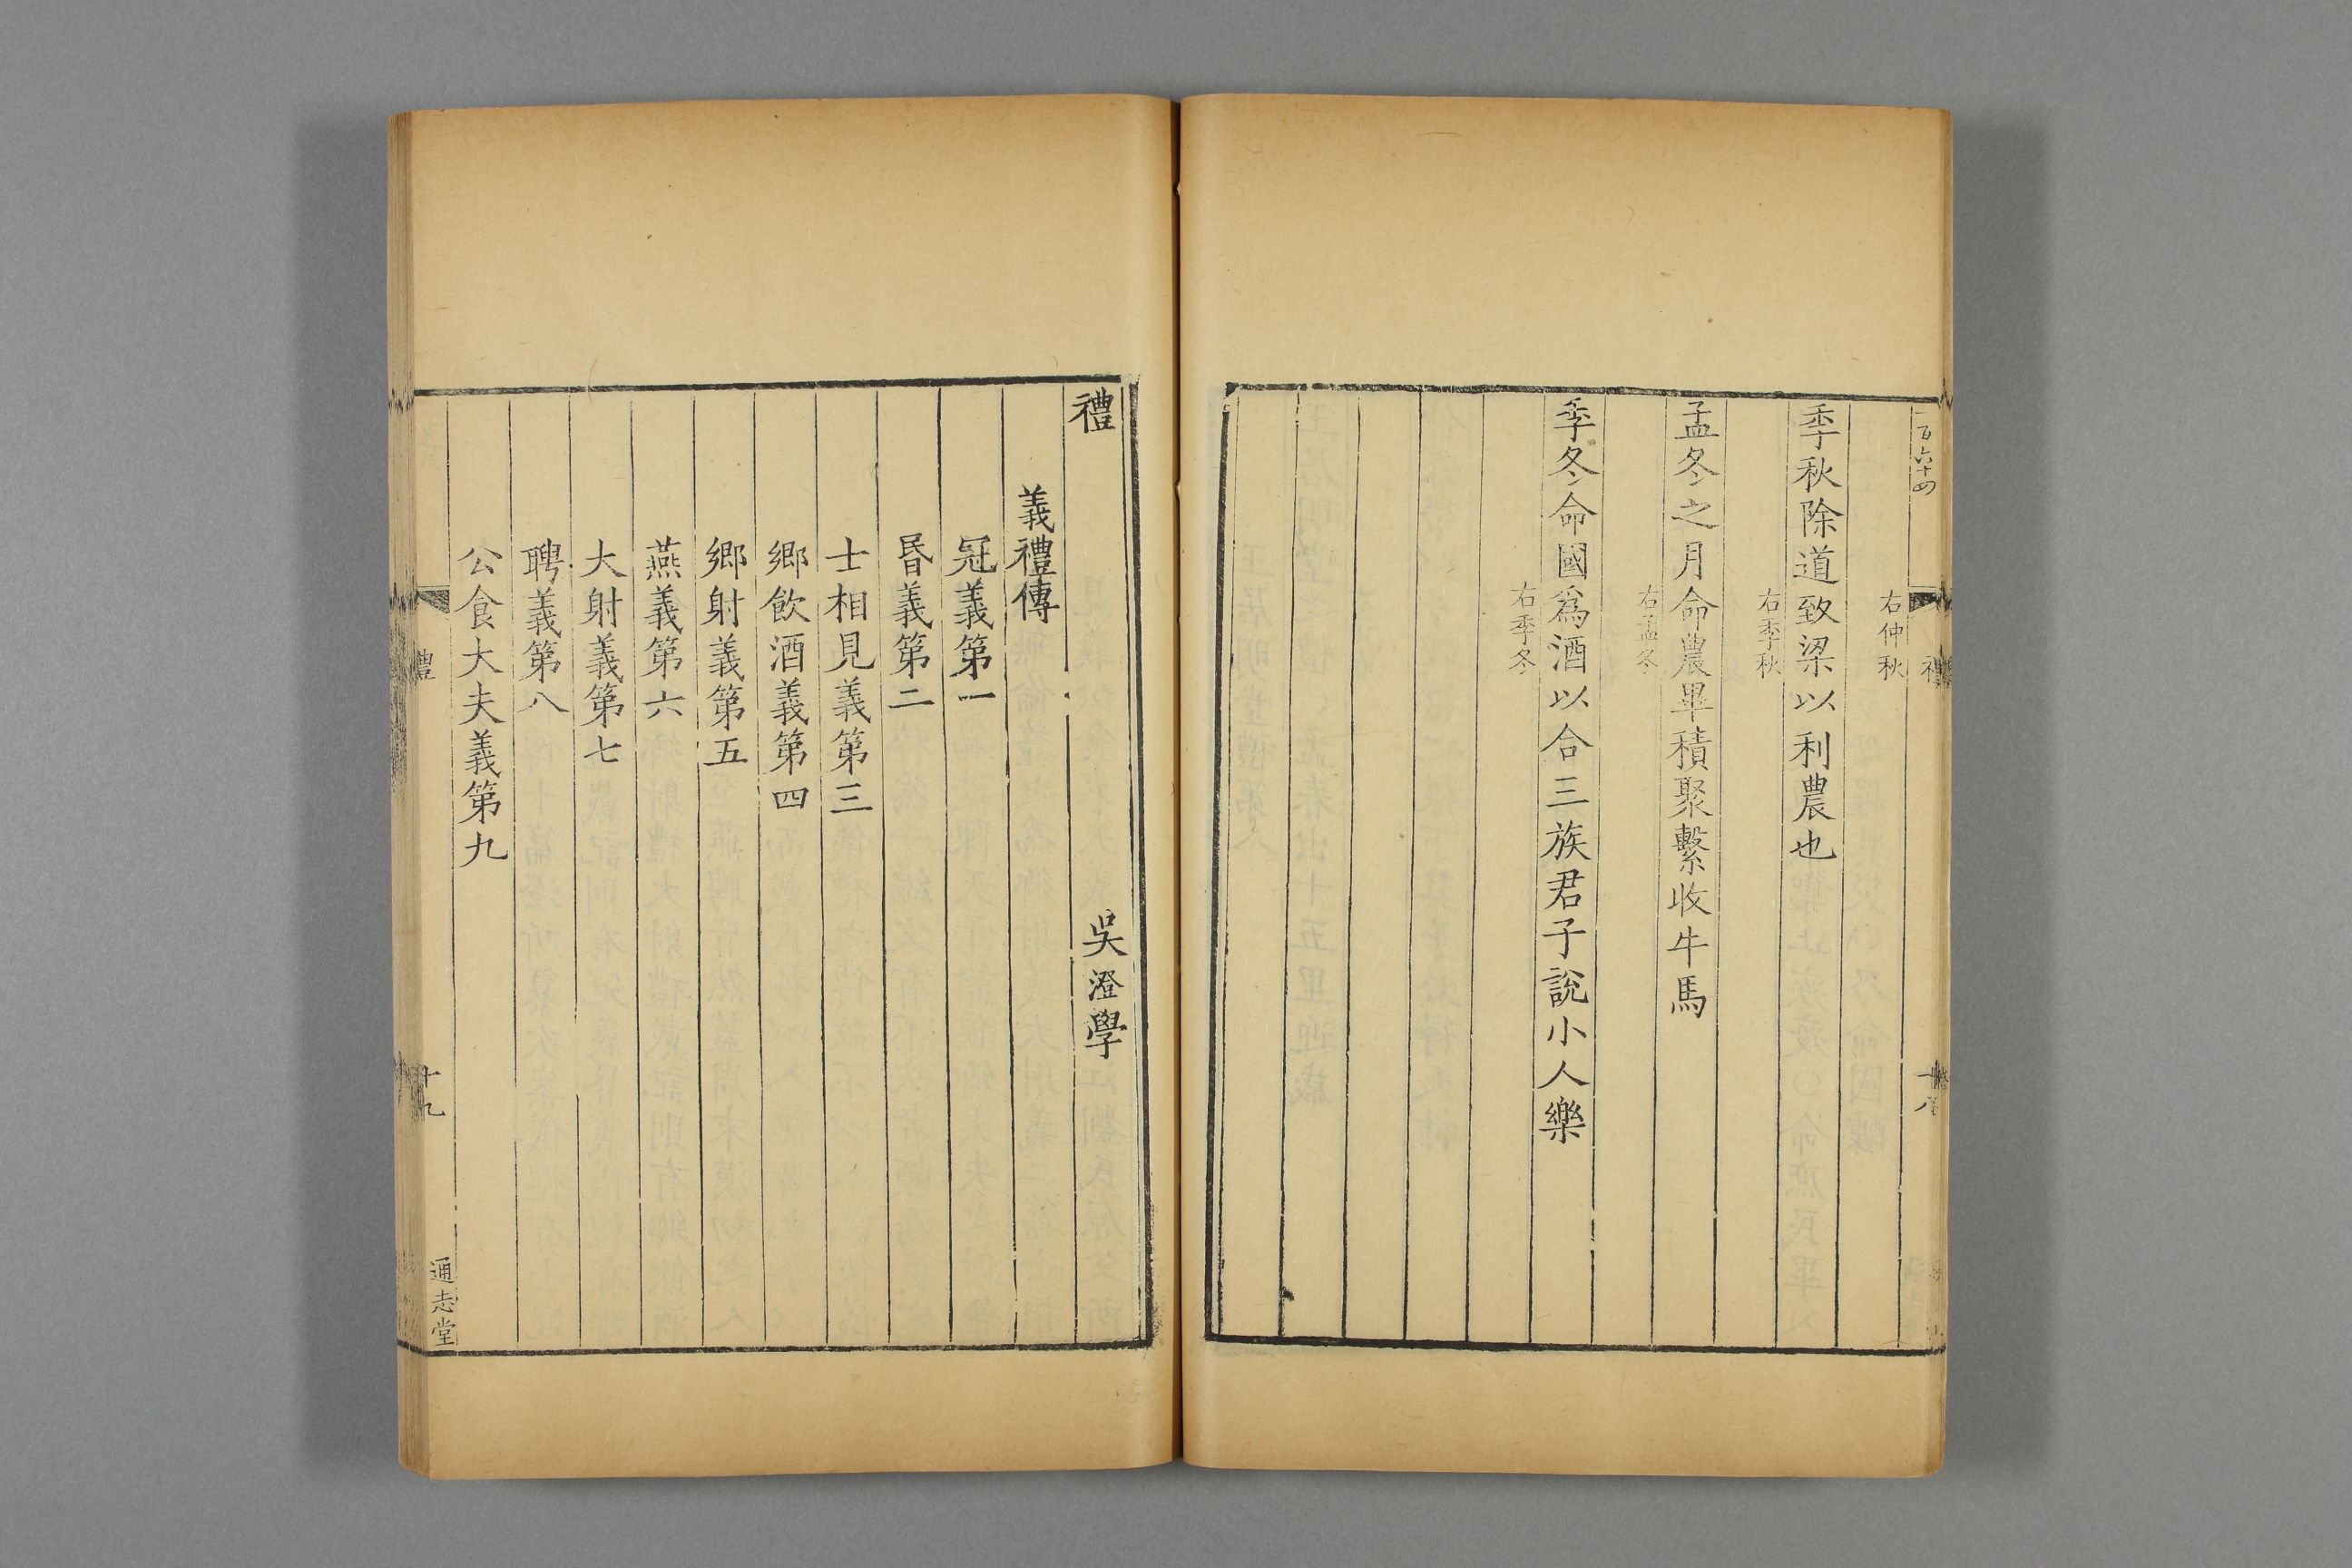 一百六十四
禮
十八
右仲秋
季秋除道致梁以利農也
右季秋
孟冬之月命農畢積聚繫收牛馬
右孟冬
季冬命國爲酒以合三族君子說小人樂
右季冬
禮
吳澄學
義禮傳
冠義第一
昬義第二
士相見義第三
鄉飲酒義第四
鄉射義第五
燕義第六
大射義第七
聘義第八
公食大夫義第九
禮
十九
通志堂